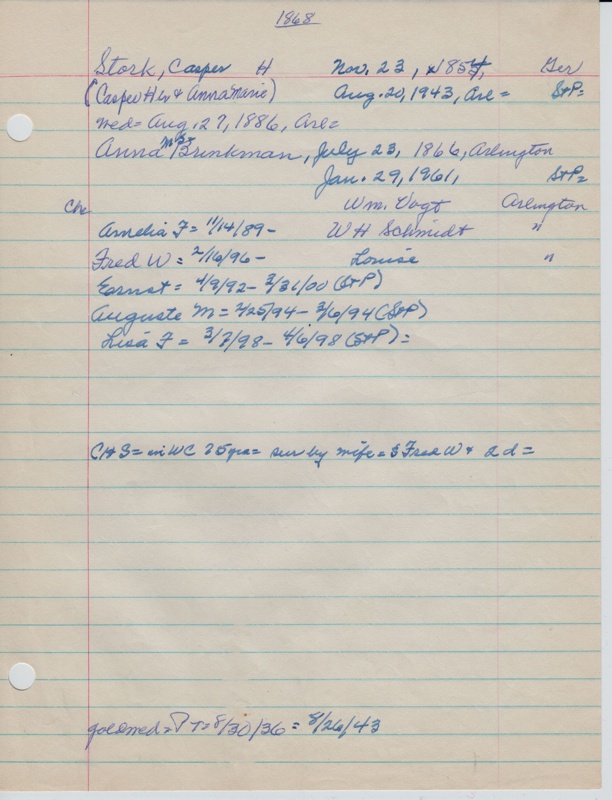 1868
Stork, Casper H Nov. 23, 1854, Ger
(Casper H Sr & Anna Marie) Aug. 20, 1943, Arl = StP=
med = Aug. 27, 1886, Arl =
Anna M Brinkman, July 23, 1866, Arlington
Jan. 29, 1961, StP=
Ch= Wm. Vogt Arlington
Amelia F = 11/14/89 - W H Schmidt "
Fred W = 2/16/96 - Louise "
Ernst = 4/9/92 - 3/31/00 (StP)
Auguste M = 2/25/94 - 3/6/94 (StP)
Lisa F = 3/7/98 - 4/6/98 (StP) =
CHS = in WC 75 yrs = sur by wife = s Fred W & 2 d =
gold med = PT = 8/30/36 = 8/26/43